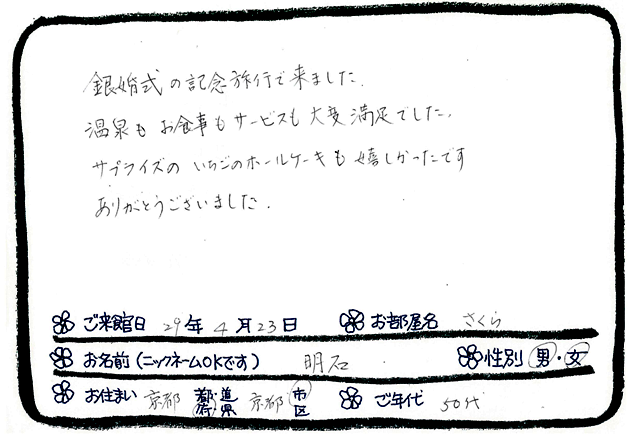 銀婚式の記念旅行で来ました。
温泉もお食事もサービスも大変満足でした。
サプライズのいちごのホールケーキも嬉しかったです
ありがとうございました。
ご来館日 29年4月23日 お部屋名 さくら
お名前(ニックネームOKです) 明石 性別 男・女
お住まい 京都 都・道府・県 京都 市区 ご年代 50代